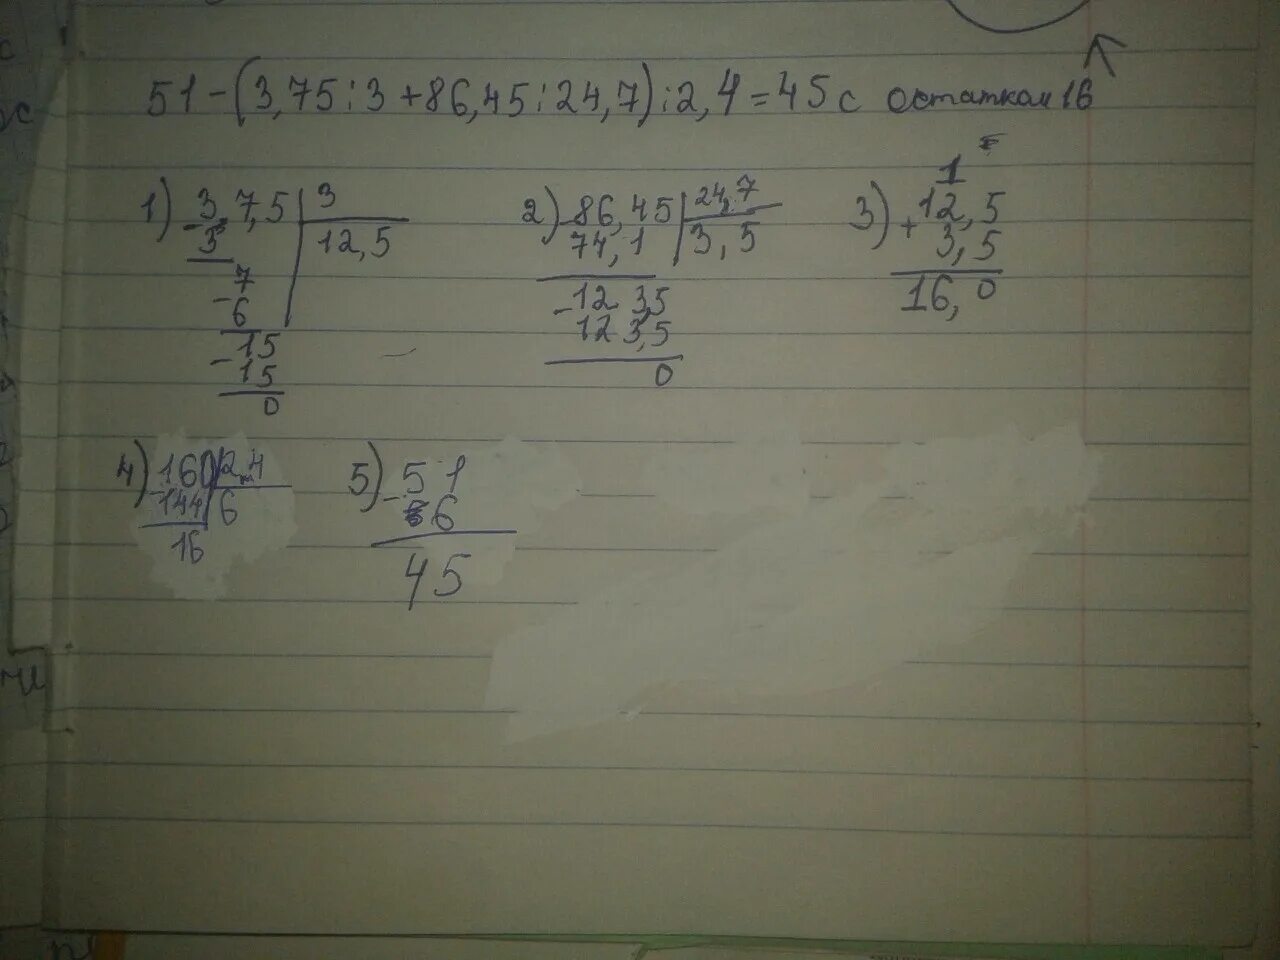 51-(3,75:3+86,45:24,7):2,4=45 с остатком 16
1) 3,7,5 | 3
3 12,5
7
-6
-15
15
0
2) 86,45 | 24,7
74,1 3,5
-12 3,5
12 3,5
0
3) 1
+12,5
3,5
16,0
4) 160 | 2,4
-144 6
16
5) -51
6
45